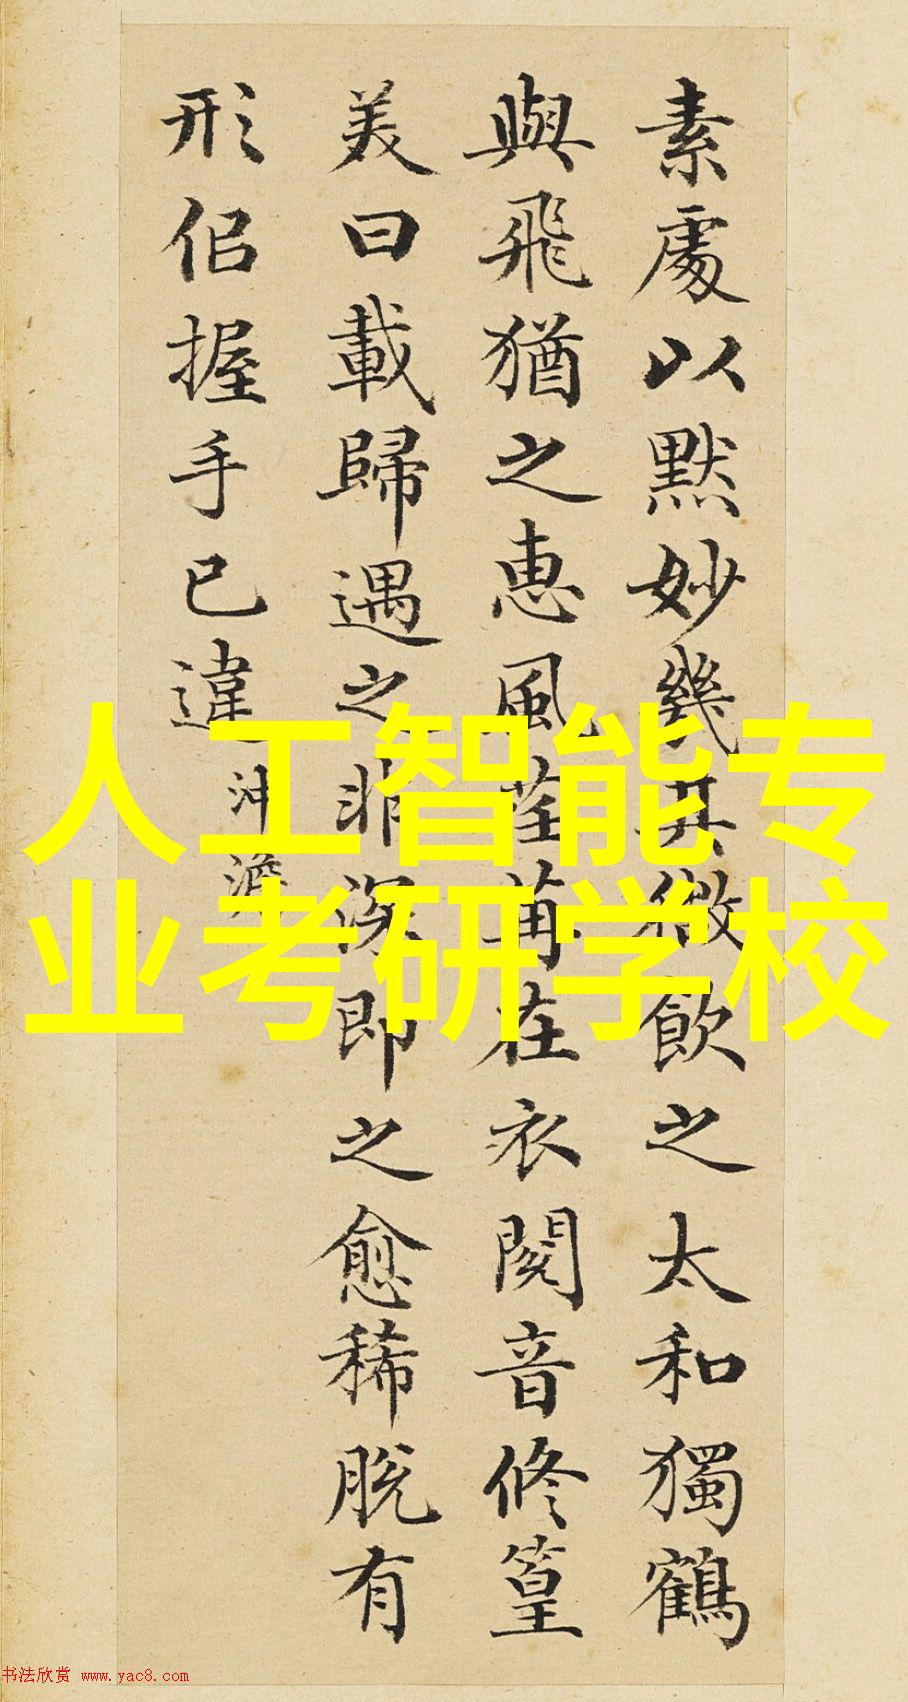 素處以默妙幾其微飲之太和獨鶴
與飛猶之惠風荏苒在衣閱音修篁
美曰載歸遇之匪深即之愈稀脫有
形佀握手已違
沖澹
人工智能专
业考研学校
书法欣赏 www.yac8.com